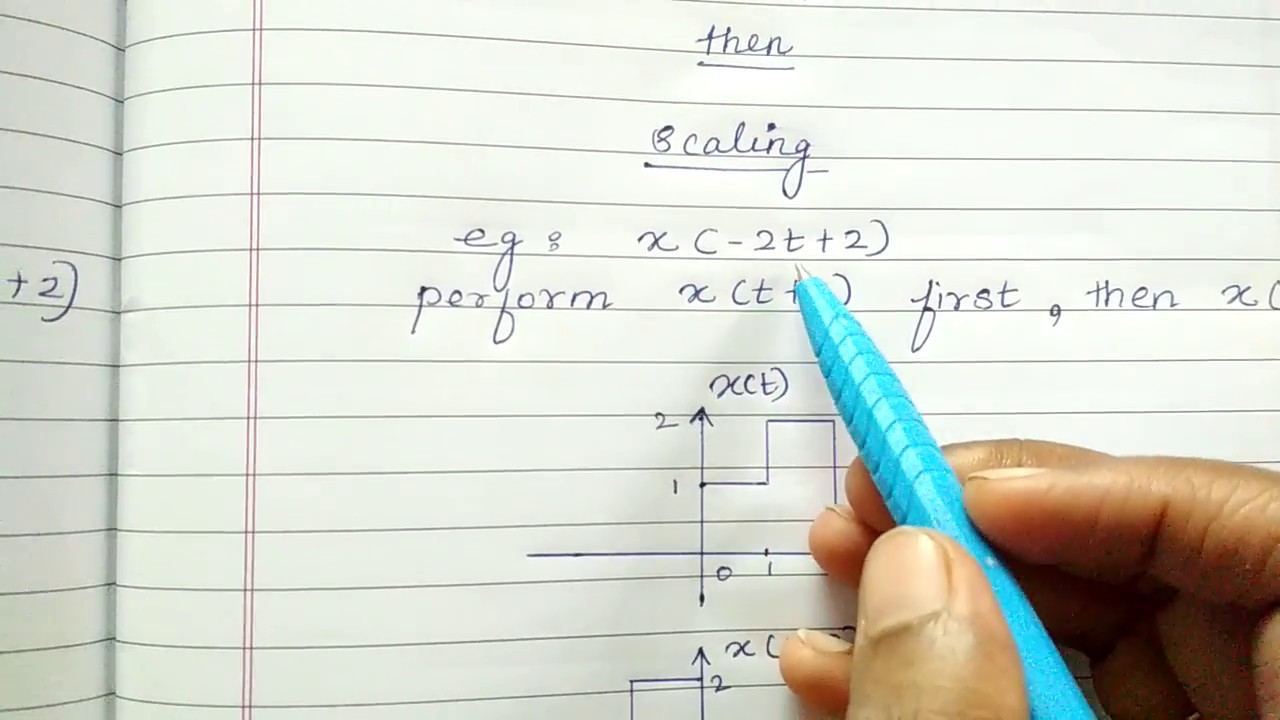 then
scaling
+2)
eg: x(-2t+2)
perform x(t+ ) first, then x(
x(t)
2
1
0 1
x(
2